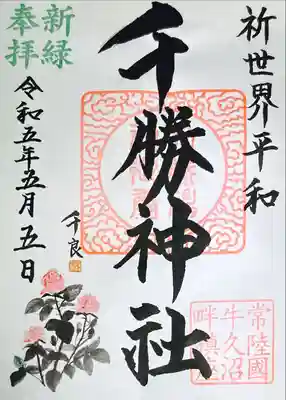 祈世界平和
千勝神社
常陸國
牛久沼
畔鎮座
新緑
奉拝
令和五年五月五日
千良